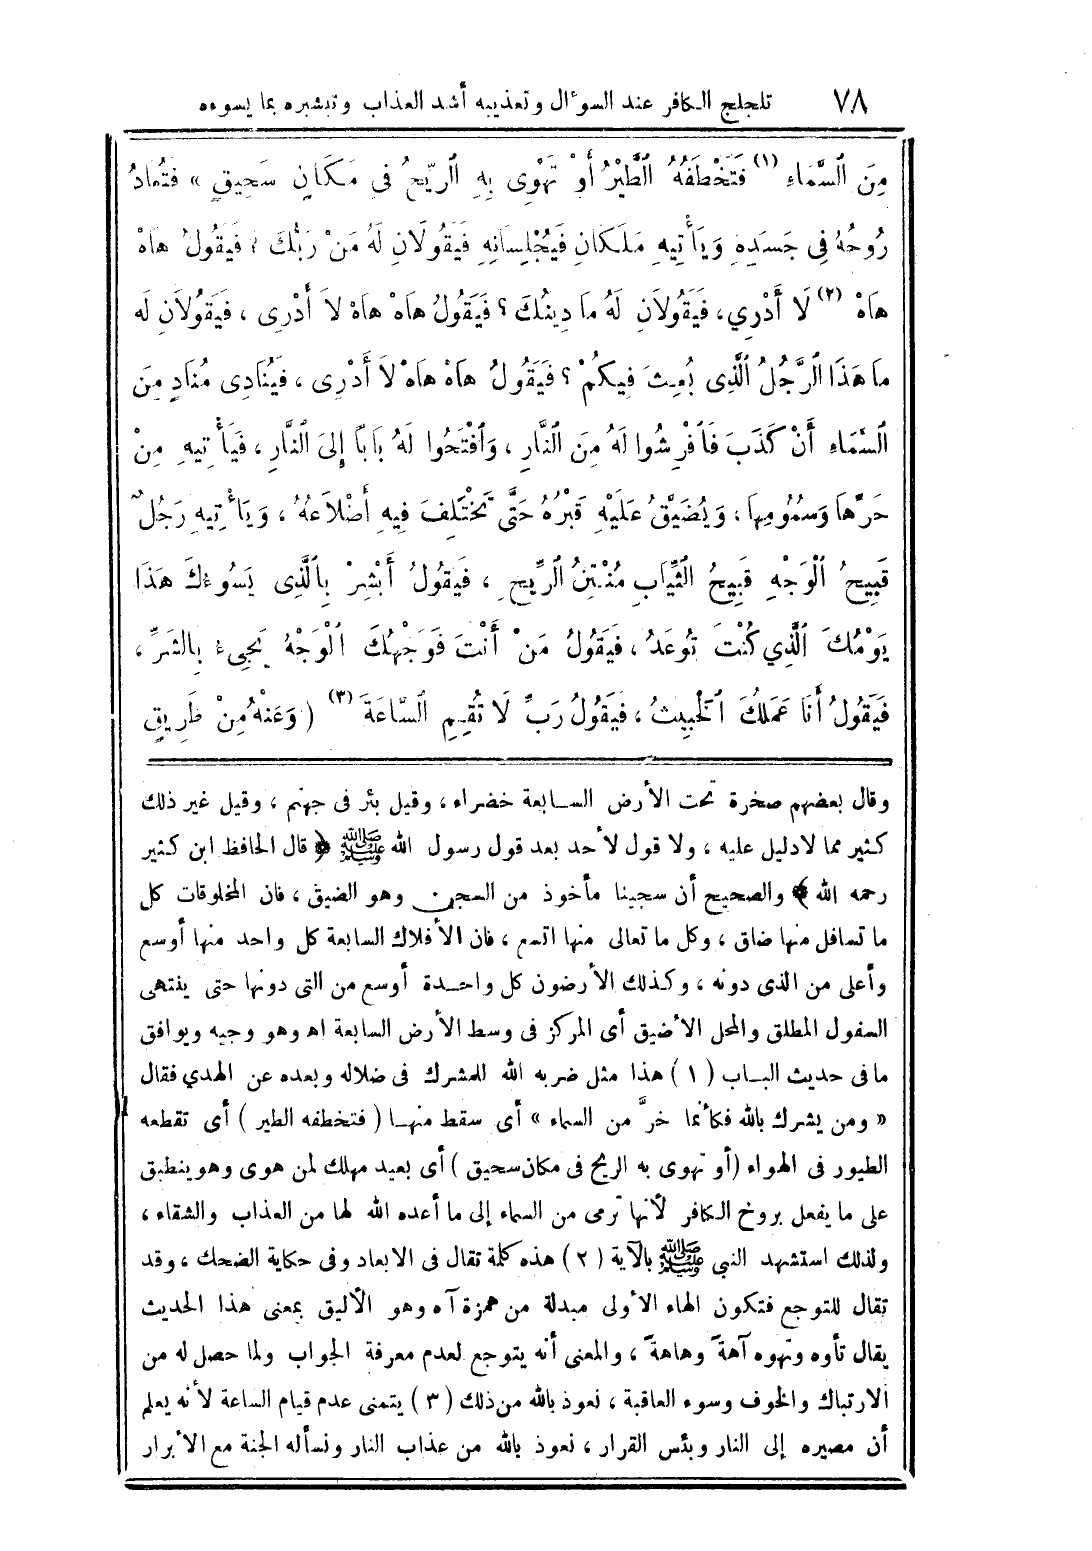 ٧٨ تلجلج الكافر عند السوءال وتعذيبه أشد العذاب وتبشيره بما يسوءه
مِنَ ٱلسَّمَاءِ (١) فَتَخْطَفُهُ ٱلطَّيْرُ أَوْ تَهْوِى بِهِ ٱلرِّيحُ فِي مَكَانٍ سَحِيقٍ » فَتُعَادُ
رُوحُهُ فِى جَسَدِهِ وَيَأْتِيهِ مَلَكَانِ فَيُجْلِسَانِهِ فَيَقُولَانِ لَهُ مَنْ رَبُّكَ ؟ فَيَقُولُ هَاهْ
هَاهْ (٢) لَا أَدْرِي، فَيَقُولَانِ لَهُ مَا دِينُكَ ؟ فَيَقُولُ هَاهْ هَاهْ لاَ أَدْرِى ، فَيَقُولاَنِ لَه
مَا هَذَا ٱلرَّجُلُ ٱلَّذِى بُعِثَ فِيكُمْ ؟ فَيَقُولُ هَاهْ هَاهْ لاَ أَدْرِى ، فَيُنَادِى مُنَادٍ مِنَ
ٱلسَّمَاءِ أَنْ كَذَبَ فَٱفْرِشُوا لَهُ مِنَ ٱلنَّارِ ، وَٱفْتَحُوا لَهُ بَابًا إِلىَ ٱلنَّارِ ، فَيَأْتِيهِ مِنْ
حَرِّهَا وَسَمُومِهَا ، وَيُضَيَّقُ عَلَيْهِ قَبْرُهُ حَتَّى تَخْتَلِفَ فِيهِ أَضْلَاعُهُ ، وَيَأْتِيهِ رَجُلٌ
قَبِيحُ ٱلْوَجْهِ قَبِيحُ ٱلثِّيَابِ مُنْتِنُ ٱلرِّيحِ ، فَيَقُولُ أَبْشِرْ بِٱلَّذِى يَسُوءُكَ هَذَا
يَوْمُكَ ٱلَّذِي كُنْتَ تُوعَدُ ، فَيَقُولُ مَنْ أَنْتَ فَوَجْهُكَ ٱلْوَجْهُ يَجِىءُ بِالشَرِّ ،
فَيَقُولُ أَنَا عَمَلُكَ ٱلْخَبِيثُ ، فَيَقُولُ رَبِّ لَا تُقِمِ ٱلسَّاعَةَ (٣) ( وَعَنْهُ مِنْ طَرِيقٍ
وقال بعضهم صخرة تحت الأرض السابعة خضراء ، وقيل بئر فى جهنم ، وقيل غير ذلك
كثير مما لادليل عليه ، ولا قول لأحد بعد قول رسول الله ﷺ ﴿ قال الحافظ ابن كثير
رحمه الله ﴾ والصحيح أن سجينا مأخوذ من السجن وهو الضيق ، فان المخلوقات كل
ما تسافل منها ضاق ، وكل ما تعالى منها اتسع ، فان الأفلاك السابعة كل واحد منها أوسع
وأعلى من الذى دونه ، وكذلك الأرضون كل واحدة أوسع من التى دونها حتى ينتهى
السفول المطلق والمحل الأضيق أى المركز فى وسط الأرض السابعة اه وهو وجيه ويوافق
ما فى حديث الباب (١) هذا مثل ضربه الله للمشرك فى ضلاله وبعده عن الهدي فقال
« ومن يشرك بالله فكأنما خرَّ من السماء » أى سقط منها ( فتخطفه الطير ) أى تقطعه
الطيور فى الهواء (أو تهوى به الريح فى مكان سحيق ) أى بعيد مهلك لمن هوى وهو ينطبق
على ما يفعل بروخ الكافر لأنها ترمى من السماء إلى ما أعده الله لها من العذاب والشقاء ،
ولذلك استشهد النبي ﷺ بالآية (٢) هذه كلمة تقال فى الابعاد وفى حكاية الضحك ، وقد
تقال للتوجع فتكون الهاء الأولى مبدلة من همزة آه وهو الأليق بمعنى هذا الحديث
يقال تأوه وتهوه آهةً وهاهةً ، والمعنى أنه يتوجع لعدم معرفة الجواب ولما حصل له من
الارتباك والخوف وسوء العاقبة ، نعوذ بالله من ذلك (٣) يتمنى عدم قيام الساعة لأنه يعلم
أن مصيره إلى النار وبئس القرار ، نعوذ بالله من عذاب النار ونسأله الجنة مع الأبرار